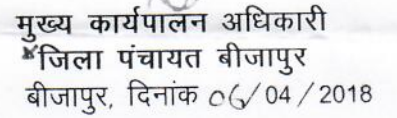 मुख्य कार्यपालन अधिकारी
जिला पंचायत बीजापुर
बीजापुर, दिनांक 06/04/2018